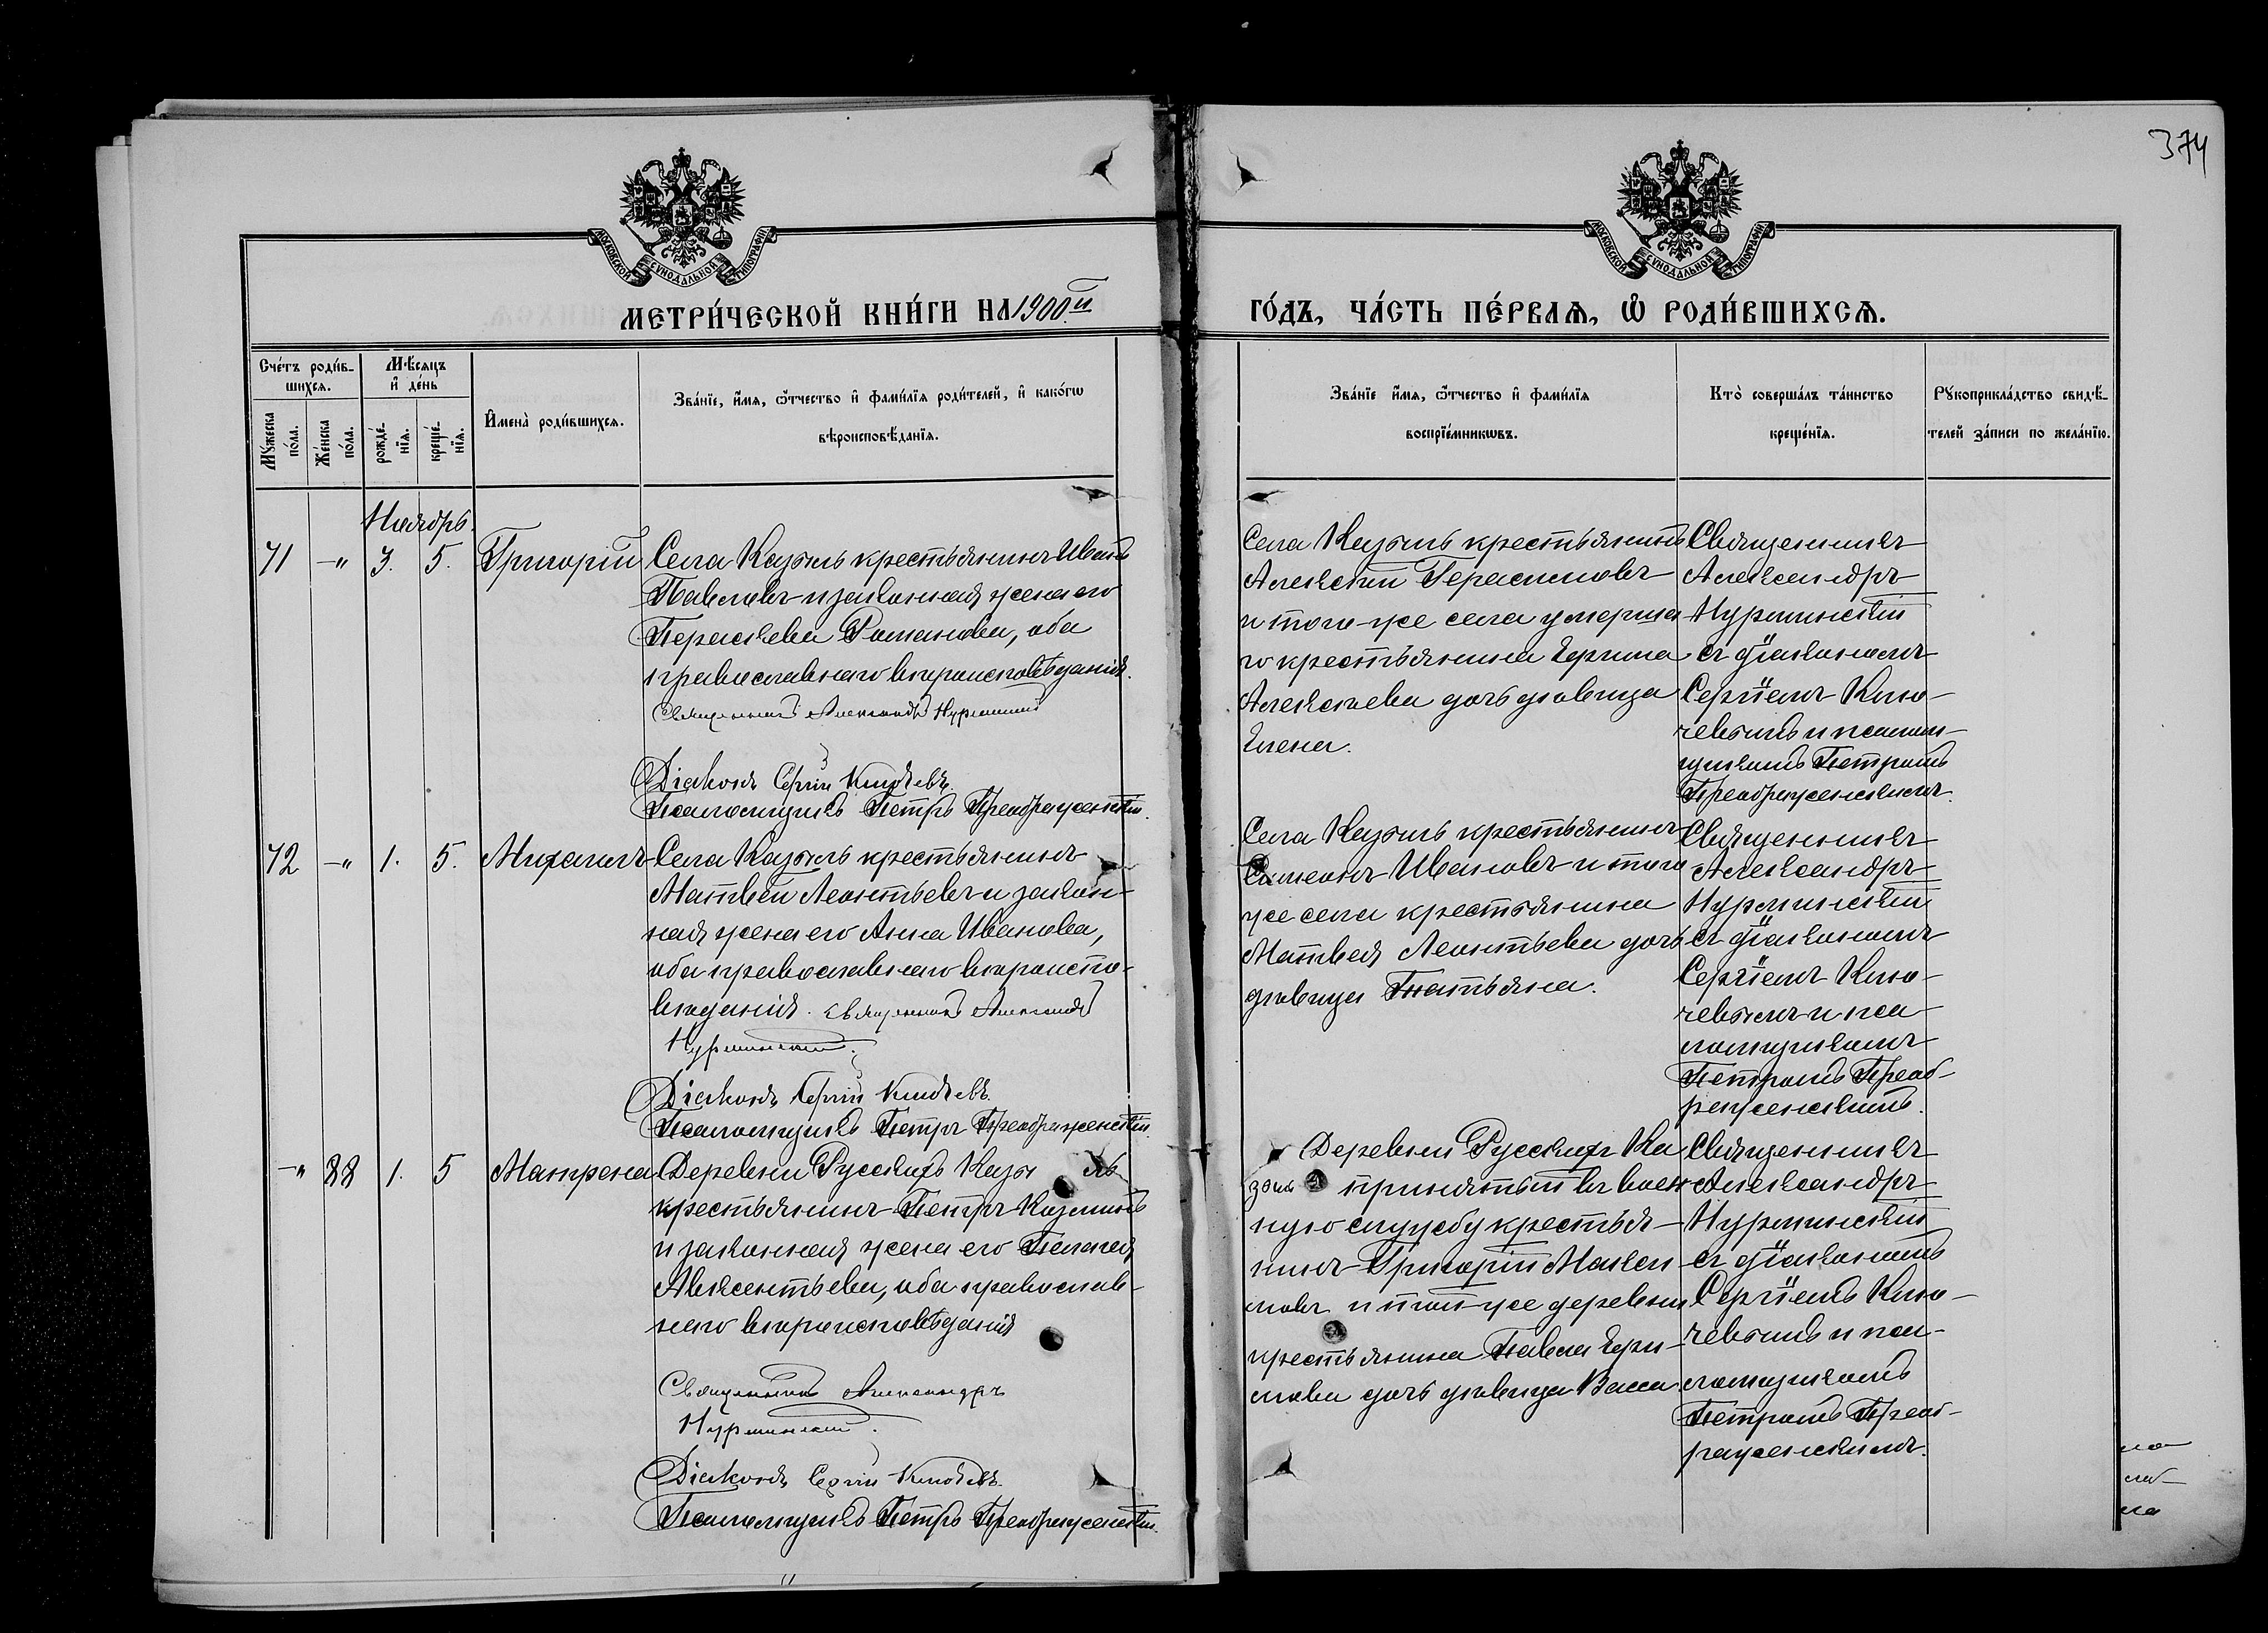 374
МОСКОВСКОЙ СѴНОДАЛЬНОЙ ТИПОГРАФІИ
МОСКОВСКОЙ СѴНОДАЛЬНОЙ ТИПОГРАФІИ
МЕТРИ́ЧЕСКОЙ КНИ́ГИ НА 1900й
ГО́ДЪ, ЧА́СТЬ ПЕ́РВАѦ, Ѿ РОДИ́ВШИХСѦ.
Сче́тъ роди́в-
шихсѧ.
Мꙋ́жеска по́ла.
Же́нска по́ла.
Мѣ́сѧцъ
и҆ де́нь
рожде́-
нїѧ.
креще́-
нїѧ.
И҆мена̀ роди́вшихсѧ.
Зва́нїе, и҆́мѧ, ѻ҆́тчество и҆ фами́лїѧ роди́телей, и҆ како́гѡ
вѣроисповѣ́данїѧ.
Зва́нїе и҆́мѧ, ѻ҆́тчество и҆ фами́лїѧ
воспрїе́мникѡвъ.
Кто̀ соверша́лъ та́инство
креще́нїѧ.
Рꙋкоприкла́дство свидѣ́-
телей за́писи по жела́нїю.
Ноябрь.
71 -" 3. 5. Григорій
Села Казыль крестьянинъ Иванъ
Павловъ и законная жена его
Параскева Романова, оба
православнаго вѣроисповѣданія.
Священникъ Александръ Нурминскій
Діаконъ Сергій Ключевъ.
Псаломщикъ Петръ Преображенскій.
Села Казыль крестьянинъ
Алексѣй Герасимовъ
и того-же села умерша-
го крестьянина Ефима
Алексѣева дочь дѣвица
Елена.
Священникъ
Александръ
Нурминскій
съ діакономъ
Сергіемъ Клю-
чевымъ и псалом-
щикомъ Петромъ
Преображенскимъ.
72 -" 1. 5. Михаилъ
Села Казыль крестьянинъ
Матвѣй Леонтьевъ и закон-
ная жена его Анна Иванова,
оба православнаго вѣроиспо-
вѣданія. Священникъ Александръ
Нурминскій.
Діаконъ Сергій Ключевъ.
Псаломщикъ Петръ Преображенскій.
Села Казыль крестьянинъ
Симеонъ Ивановъ и того
же села крестьянина
Матвея Леонтьева дочь
дѣвица Татьяна.
Священникъ
Александръ
Нурминскій
съ діакономъ
Сергіемъ Клю-
чевымъ и пса-
ломщикомъ
Петромъ Преоб-
раженскимъ.
-" 88 1. 5 Матрена
Деревни Русскихъ Казы ль
крестьянинъ Петръ Козминъ
и законная жена его Пелагея
Авксентьева, оба православ-
наго вѣроисповѣданія
Священникъ Александръ
Нурминскій.
Діаконъ Сергій Ключевъ.
Псаломщикъ Петръ Преображенскій.
Деревни Русскихъ Ка
зыль принятый въ воен
ную службу крестья-
нинъ Григорій Макси
мовъ и той-же деревни
крестьянина Павла Ефи-
мова дочь дѣвица Васса
Священникъ
Александръ
Нурминскій
съ діакономъ
Сергіемъ Клю-
чевымъ и пса-
ломщикомъ
Петромъ Преоб-
раженскимъ.